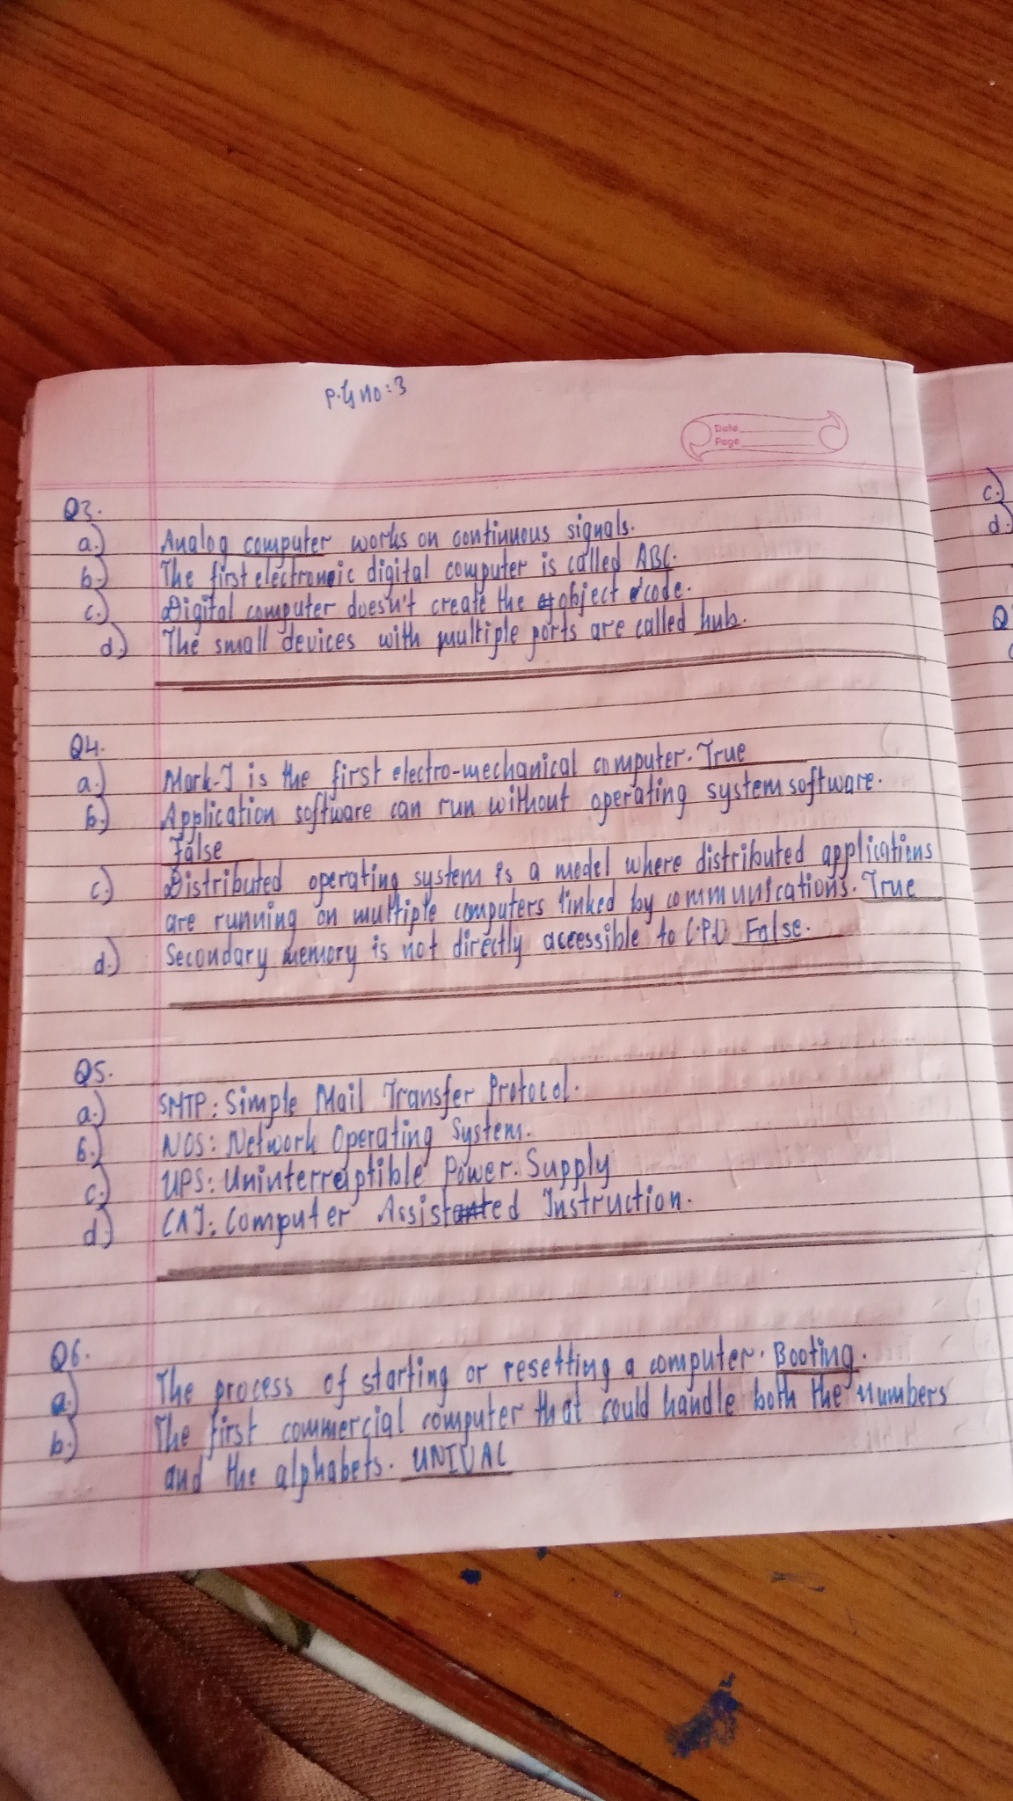 P.g no:3
Date
Page
Q3.
a.) Analog computer works on continuous signals.
b.) The first electroneic digital computer is called ABC.
c.) Digital computer doesn't create the object code.
d.) The small devices with multiple ports are called hub.
Q4.
a.) Mark-I is the first electro-mechanical computer. True
b.) Application software can run without operating system software.
False
c.) Distributed operating system is a model where distributed applications
are running on multiple computers linked by communications. True
d.) Secondary memory is not directly accessible to C.P.U False.
Q5.
a.) SMTP: Simple Mail Transfer Protocol.
b.) NOS: Network Operating System.
c.) UPS: Power Supply
d.) CAI: Computer Assisted Instruction.
Q6.
a.) The process of starting or resetting a computer. Booting.
b.) The first commercial computer that could handle both the numbers
and the alphabets. UNIVAC
c.)
d.)
Q